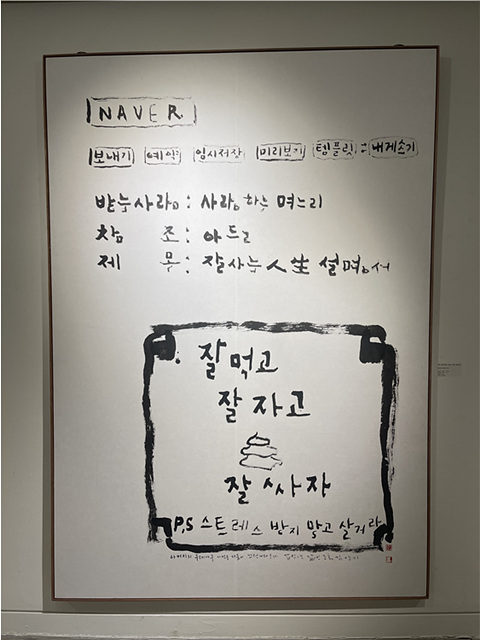 NAVER
보내기 예약 임시저장 미리보기 템플릿 내게쓰기
받는사람 : 사랑하는 며느리
참 조 : 아드를
제 목 : 잘사는 人生 설명서
잘먹고
잘 자고
잘 싸자
P,S 스트레스 받지 말고 살거라